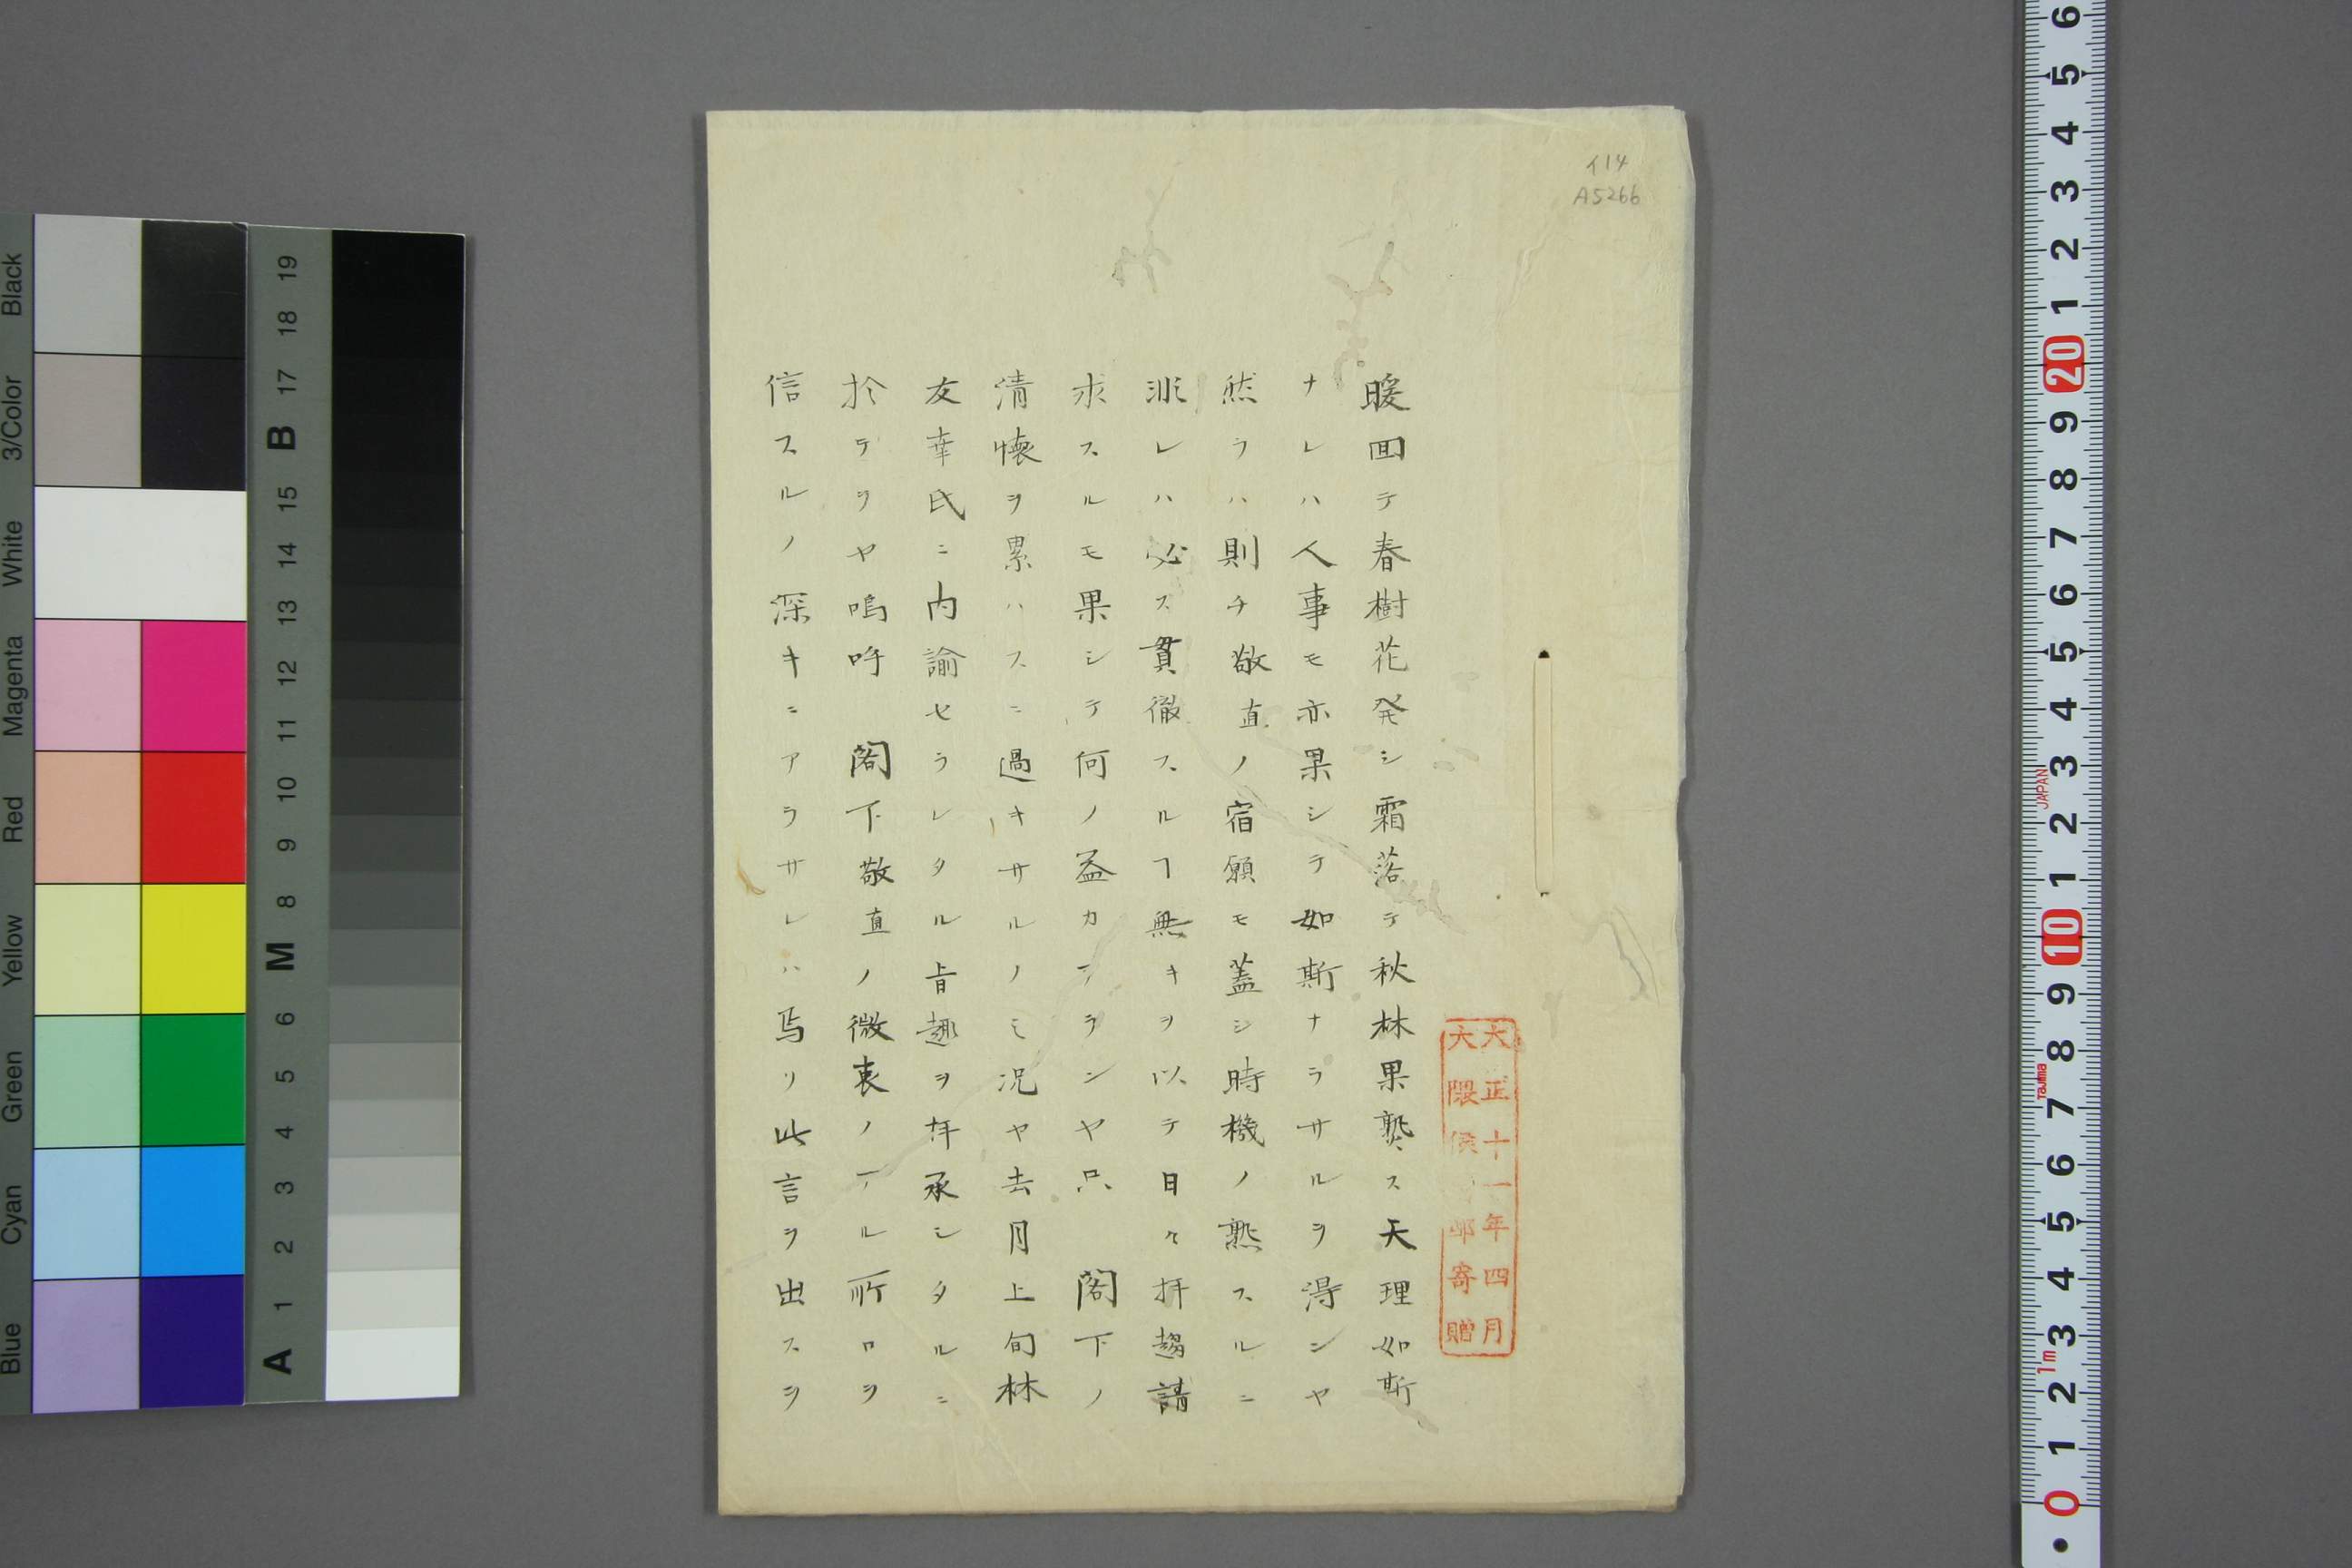 イ14
A5266
大正十一年四月
大隈侯邸寄贈
暖回テ春樹花発シ霜落テ秋林果熟ス天理如斯
ナレハ人事モ亦果シテ如斯ナラサルヲ得ンヤ
然ラハ則チ敬直ノ宿願モ蓋シ時機ノ熟スルニ
非レハ必ス貫徹スルヿ無キヲ以テ日々拝趨請
求スルモ果シテ何ノ益カアランヤ只 閣下ノ
清懐ヲ累ハスニ過キサルノミ況ヤ去月上旬林
友幸氏ニ内諭セラレタル旨趣ヲ拝承シタルニ
於テヲヤ嗚呼 閣下敬直ノ微衷ノアル所ロヲ
信スルノ深キニアラサレハ焉リ此言ヲ出スヲ
Black
3/Color
White
Magenta
Red
Yellow
Green
Cyan
Blue
A 1 2 3 4 5 6 M 8 9 10 11 12 13 14 15 B 17 18 19
6 5 4 3 2 1 20 9 8 7 6 5 4 3 2 1 10 9 8 7 6 5 4 3 2 1 0
JAPAN
Tajima
1m